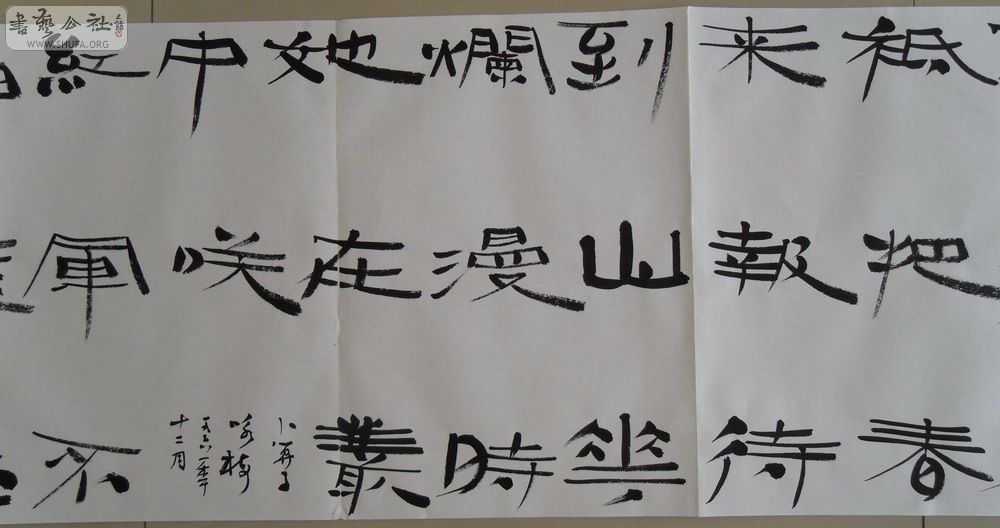 書藝公社
WWW.SHUFA.ORG
祗把春
来報待
到山華
爛漫時
她在叢
中咲
卜算子
咏梅
一九六一年
十二月
紅軍不